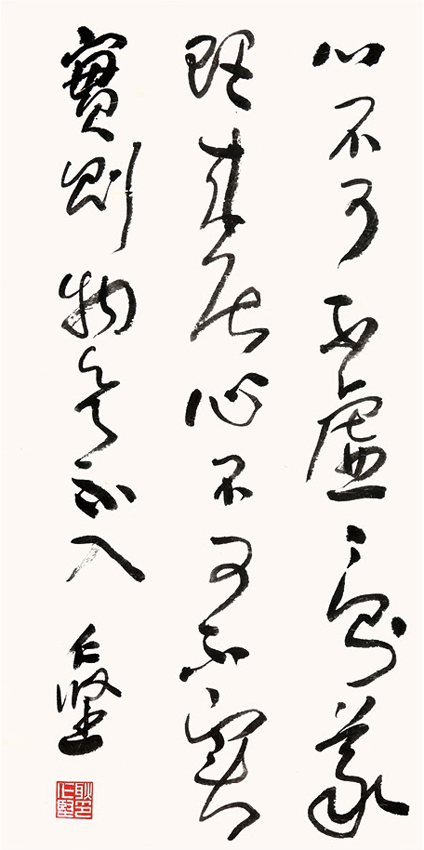 心不可不虛〻則義
理来居心不可不實
實則物欲不入 仁堅